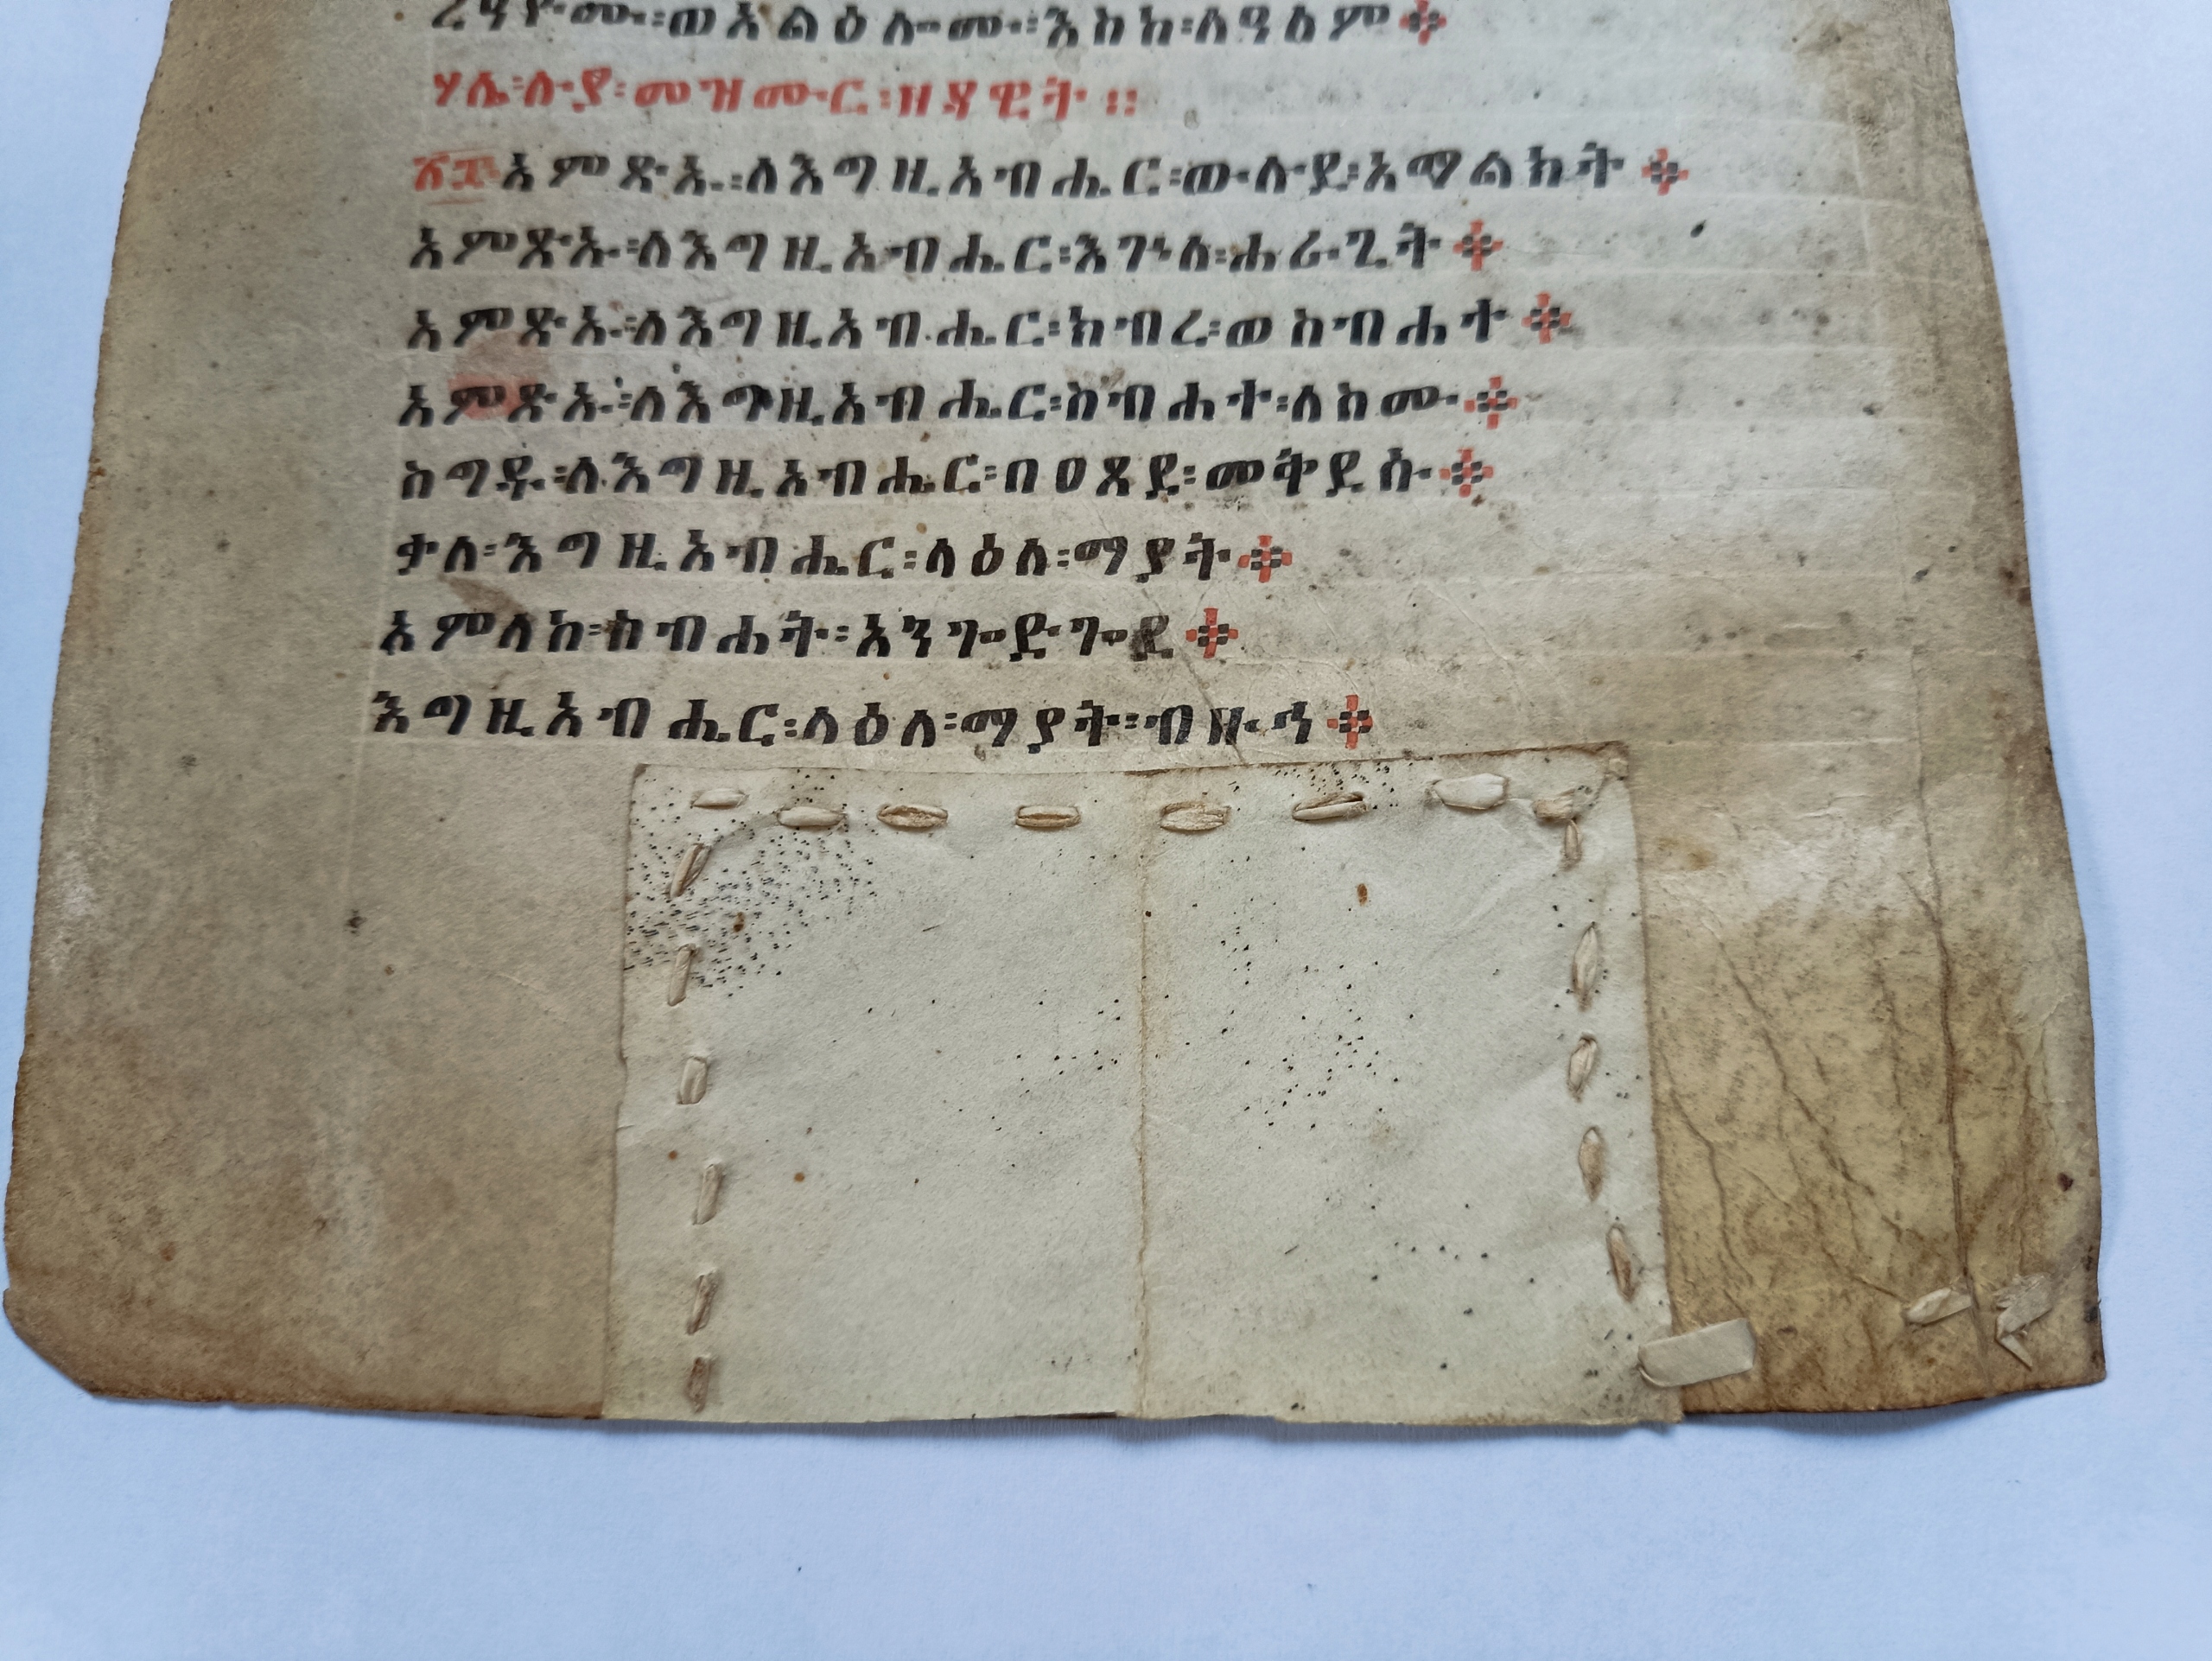 ረዓዮሙ፡ወአልዕሎሙ፡እስከ፡ለዓለም፨
ሃሌ፡ሉያ፡መዝሙር፡ዘዳዊት፡፡
፳፰አምጽኡ፡ለእግዚአብሔር፡ውሉደ፡አማልክት፨
አምጽኡ፡ለእግዚአብሔር፡እጐለ፡ሐራጊት፨
አምጽኡ፡ለእግዚአብሔር፡ክብረ፡ወስብሐተ፨
አምጽኡ፡ለእግዚአብሔር፡ስብሐተ፡ለስሙ፨
ስግዱ፡ለእግዚአብሔር፡በዐጸደ፡መቅደሱ፨
ቃለ፡እግዚአብሔር፡ላዕለ፡ማያት፨
አምላከ፡ስብሐት፡አንጐድጐደ፨
እግዚአብሔር፡ላዕለ፡ማያት፡ብዙኅ፨